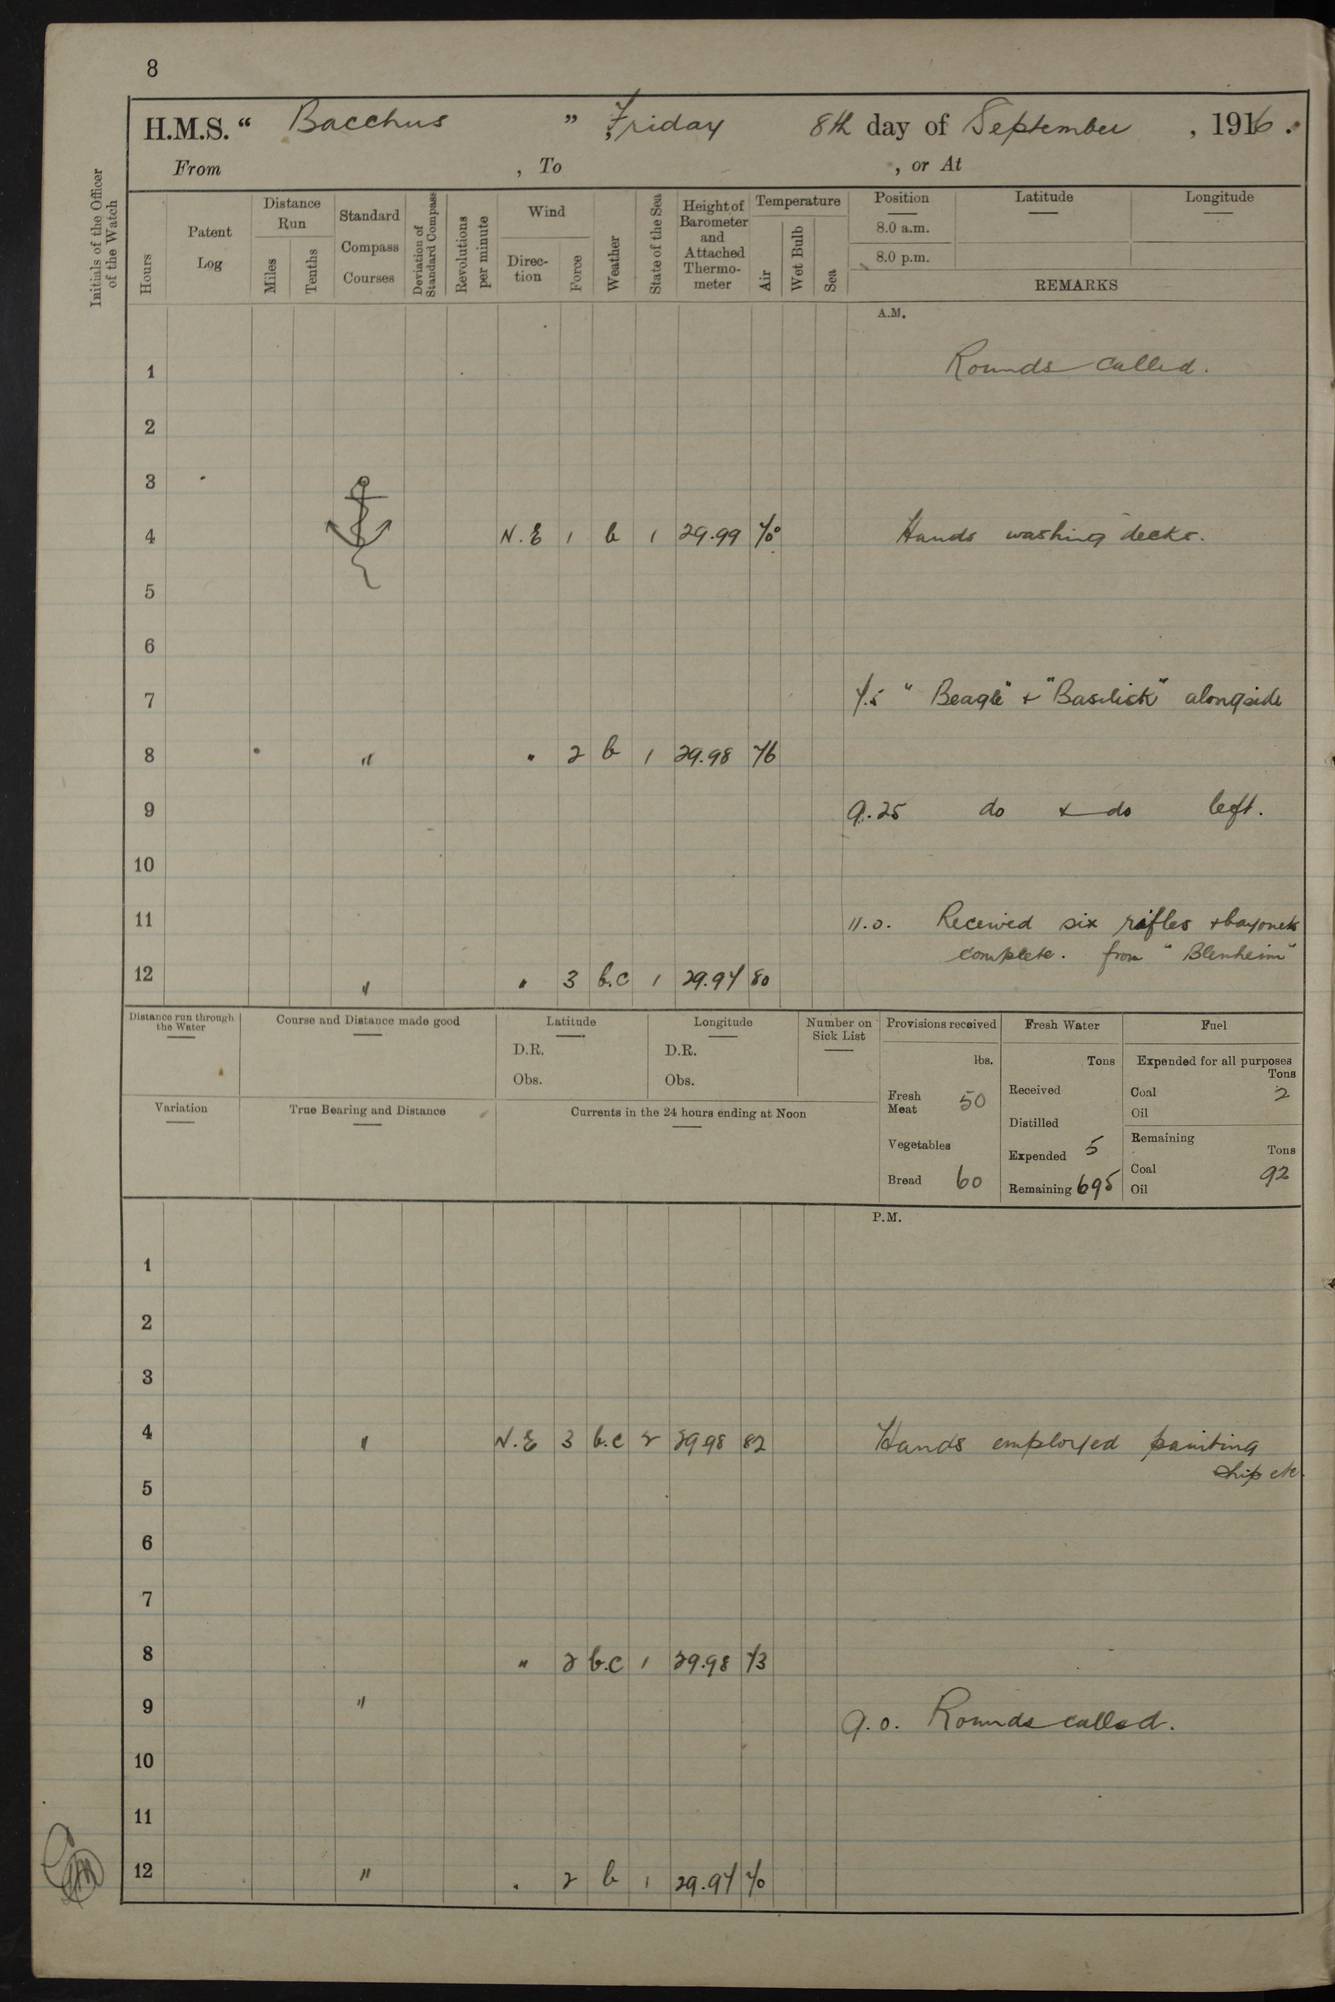 8
H.M.S. “ Bacchus ” , Friday 8th day of September , 1916 .
From , To , or At
Initials of the Officer of the Watch
Hours
Patent Log
Distance Run
Miles
Tenths
Standard Compass Courses
Deviation of Standard Compass
Revolutions per minute
Wind
Direc-tion
Force
Weather
State of the Sea
Height of Barometer and Attached Thermo-meter
Temperature
Air
Wet Bulb
Sea
Position
8.0 a.m.
8.0 p.m.
Latitude
Longitude
REMARKS
A.M.
1 Rounds called.
2
3
4 N.E 1 b 1 29.99 70 Hands washing decks.
5
6
7 7.5 " Beagle" & "Basilisk" alongside
8 " " 2 b 1 29.98 76
9 9.25 do & do left.
10
11 11.0. Received six rifles & bayonets
complete. from " Blenheim"
12 " " 3 b.c 1 29.97 80
Distance run through the Water
Course and Distance made good
Latitude
D.R.
Obs.
Longitude
D.R.
Obs.
Number on Sick List
Provisions received
lbs.
Fresh Meat 50
Vegetables
Bread 60
Fresh Water
Tons
Received
Distilled
Expended 5
Remaining 695
Fuel
Expended for all purposes
Tons
Coal 2
Oil
Remaining
Tons
Coal 92
Oil
Variation
True Bearing and Distance
Currents in the 24 hours ending at Noon
P.M.
1
2
3
4 " N.E 3 b.c 2 29.98 82 Hands employed painting
ship etc.
5
6
7
8 " 2 b.c 1 29.98 73
9 " 9.0. Rounds called.
10
11
12 " " 2 b 1 29.97 70